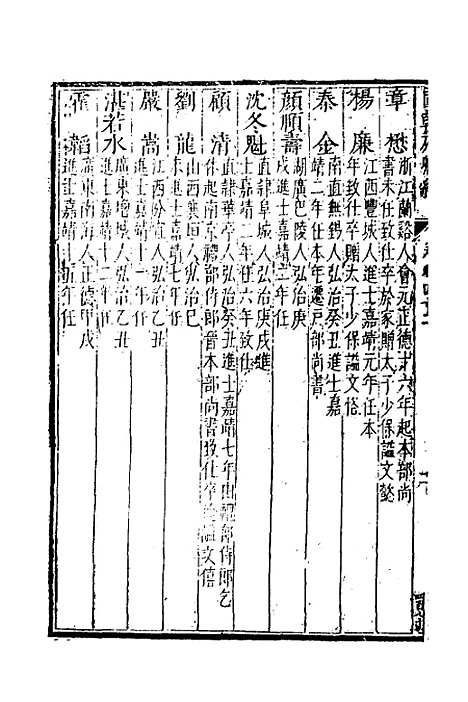 章懋　浙江蘭谿人會元正德十六年起本部尚
書未任致仕卒於家贈太子少保諡文懿
楊廉　江西豐城人進士嘉靖元年任本
年致仕卒贈太子少保諡文恪
秦金　南直無錫人弘治癸丑進士嘉
靖二年任本年遷戸部尚書
顔順壽　湖廣巴陵人弘治庚
戌進士嘉靖三年任
沈冬魁　直隸阜城人弘治庚戌進
士嘉靖二年任六年致仕
顧清　直隸華亭人弘治癸丑進士嘉靖七年由禮部侍郎乞
休起南京禮部侍郎晉本部尚書致仕卒諡文僖
劉龍　山西襄垣人弘治己
未進士嘉靖七年任
嚴嵩　江西分宜人弘治乙丑
進士嘉靖十一年任
湛若水　廣東增城人弘治乙丑
進士嘉靖十二年任
霍韜　廣東南海人正德甲戌
進士嘉靖十五年任